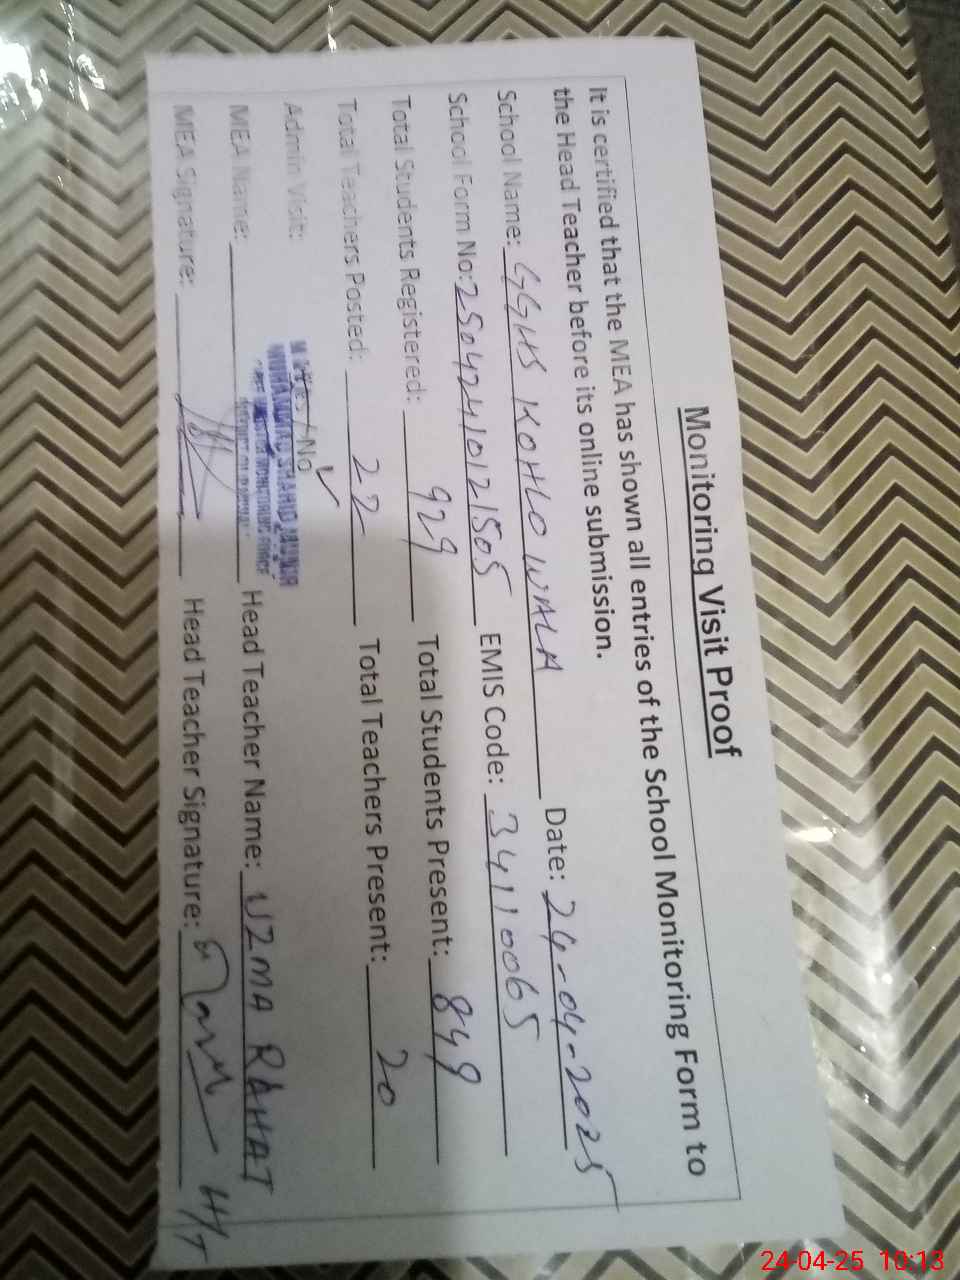 Monitoring Visit Proof
It is certified that the MEA has shown all entries of the School Monitoring Form to
the Head Teacher before its online submission.
School Name: GGHS KOHLO WALA Date: 24-04-2025
School Form No: 25042410121505 EMIS Code: 34110065
Total Students Registered: 929 Total Students Present: 849
Total Teachers Posted: 22 Total Teachers Present: 20
Admin Visit: Yes / No ✓
MEA Name: MUHAMMAD Head Teacher Name: UZMA RAHAT
MEA Signature: Head Teacher Signature: H/T
24-04-25 10:13